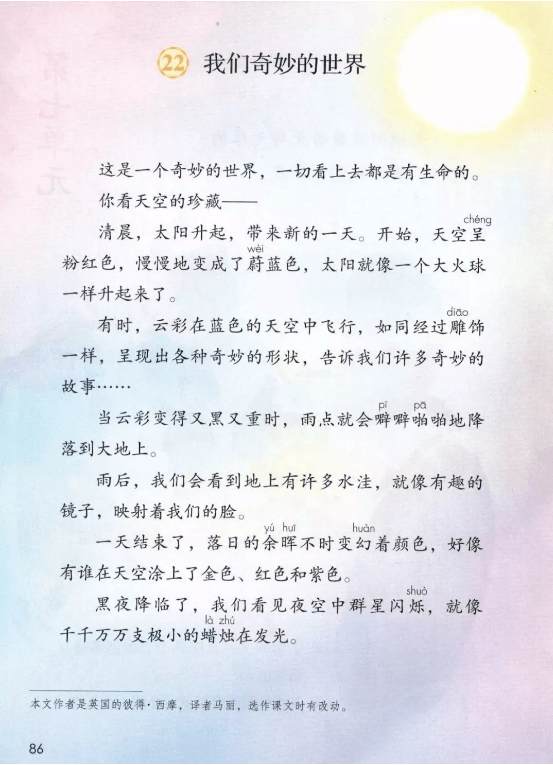 22 我们奇妙的世界
这是一个奇妙的世界，一切看上去都是有生命的。
你看天空的珍藏——
chéng
清晨，太阳升起，带来新的一天。开始，天空呈
wèi
粉红色，慢慢地变成了蔚蓝色，太阳就像一个大火球
一样升起来了。
diāo
有时，云彩在蓝色的天空中飞行，如同经过雕饰
一样，呈现出各种奇妙的形状，告诉我们许多奇妙的
故事……
pī pā
当云彩变得又黑又重时，雨点就会噼噼啪啪地降
落到大地上。
雨后，我们会看到地上有许多水洼，就像有趣的
镜子，映射着我们的脸。
yú huī huàn
一天结束了，落日的余晖不时变幻着颜色，好像
有谁在天空涂上了金色、红色和紫色。
shuò
黑夜降临了，我们看见夜空中群星闪烁，就像
là zhú
千千万万支极小的蜡烛在发光。
本文作者是英国的彼得·西摩，译者马丽，选作课文时有改动。
86